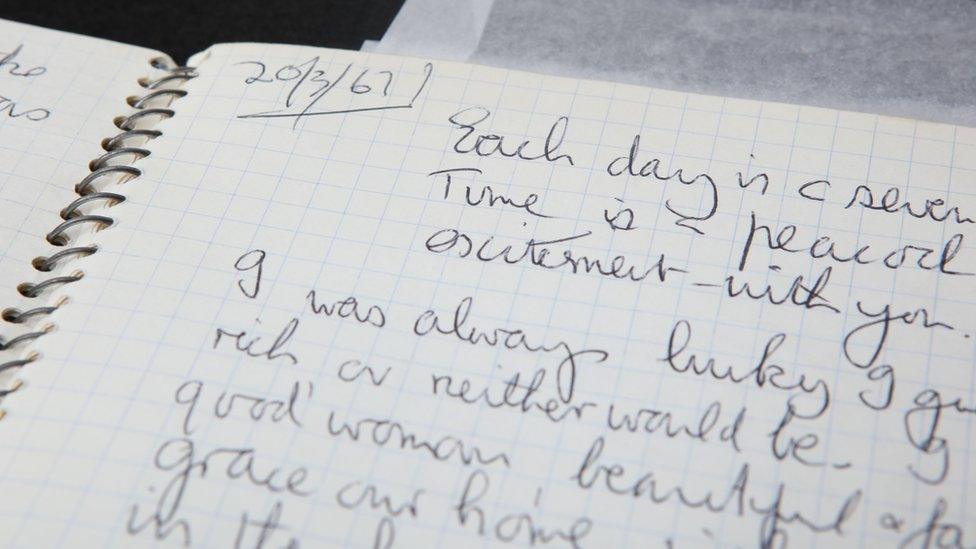 ho
as
20/3/67
Each day is a seven
Time is a peacock
excitement - with you.
I was always lucky I gu
rich or neither would be. I
good woman beautiful + fa
grace our home
in the